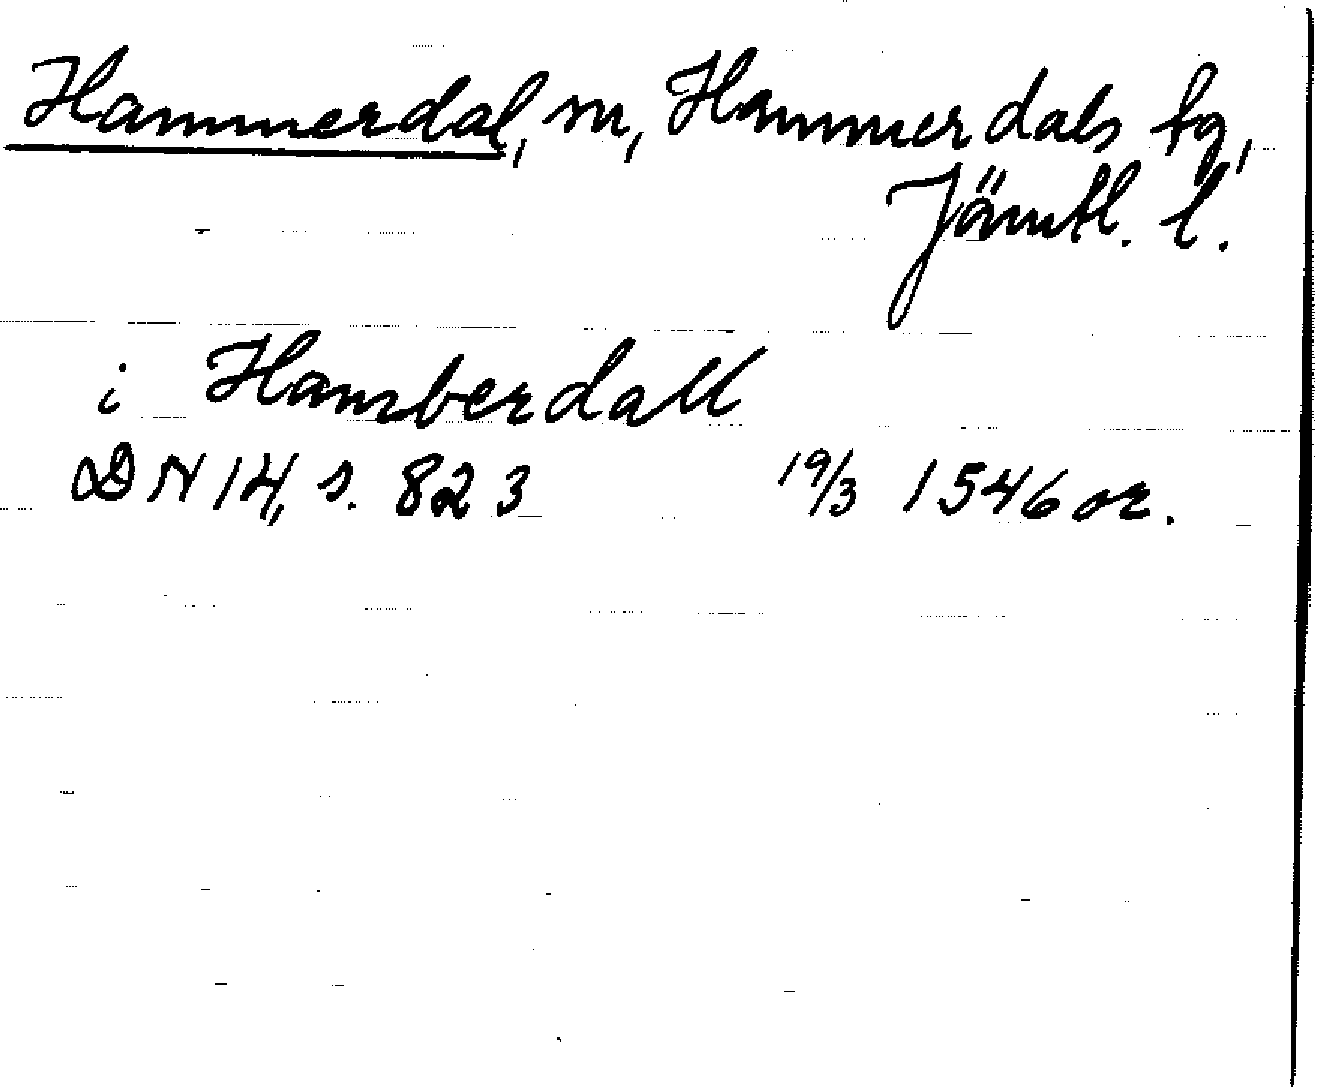 Hammerdal, sn, Hammerdals fg,
Jämtl. l.
i Hamberdall
DN 14, s. 823 19/3 1546 or.